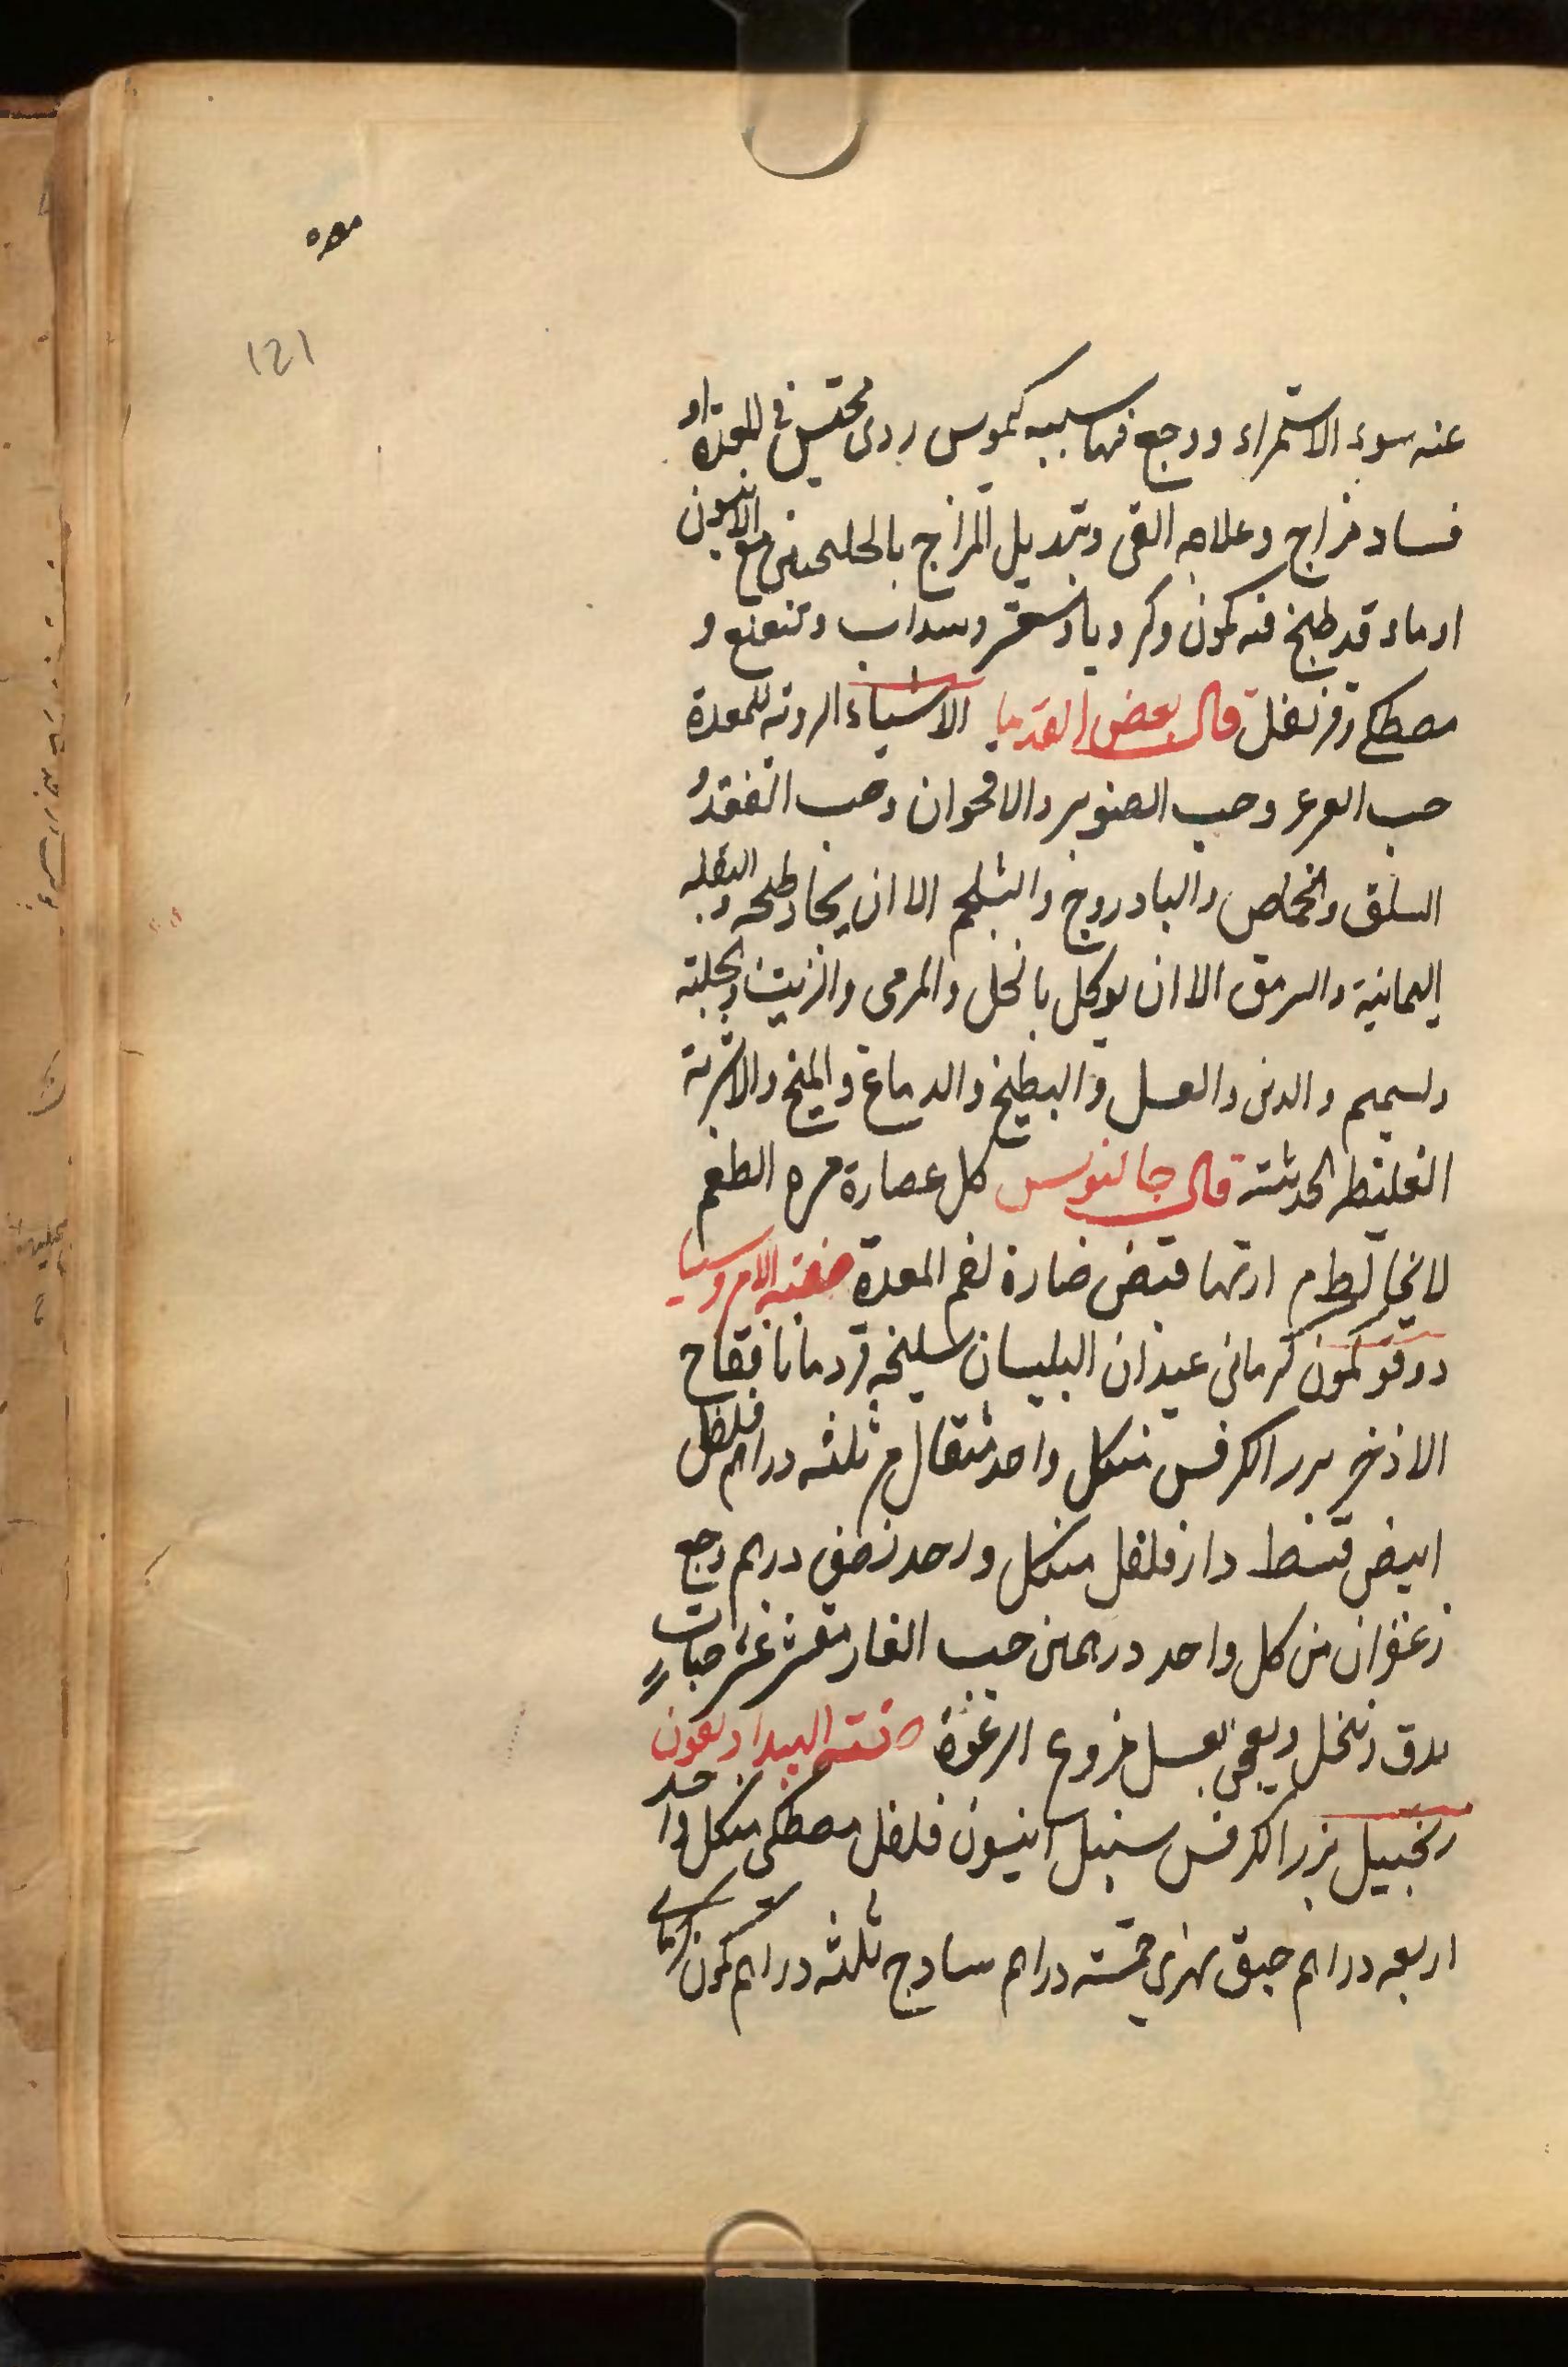 معده
121
عنه سوء الاستمراء ووجع فيها سببه كيموس ردى محتبس فى المعدة او
فساد مزاج وعلاجه القى وتبديل المزاج بالجلنجبين مع الانيسون
او ماء قد طبخ فيه كمون وكرويا وسعتر وسداب ونعنع و
مصطكى وقرنفل قال بعض القدما الاشياء الردئة للمعدة
حب العرعر وحب الصنوبر والاقحوان وحب الفقد و
السلق والحماض والبادروج والشلجم الا ان يجاد طبخه والبقلة
اليمانية والسرمق الا ان يوكل بالخل والمرى والزيت والحلبة
والسمسم واللبن والعسل والبطيخ والدماغ والمخ والاشربة
الغليظه الحديثة قال جالنوس كل عصارة مره الطعم
لا يخالط مرارتها قبض ضارة لفم المعدة صفة الامروسيا
دوقو كمون كرمانى عيدان البلسان سليخه قردمانا فقاح
الاذخر بزر الكرفس منكل واحد مثقال مر ثلثه دراهم فلفل
ابيض قسط دارفلفل منكل واحد نصف درهم وج
زعفران من كل واحد درهمين حب الغار مقشر عشر حبات
يدق وينخل ويعجن بعسل منزوع الرغوة صفة
زنجبيل بزر الكرفس سنبل انيسون فلفل مصطكى منكل واحد
اربعه دراهم حبق نهرى خمسة دراهم سادج ثلثه دراهم كمون كرمانى